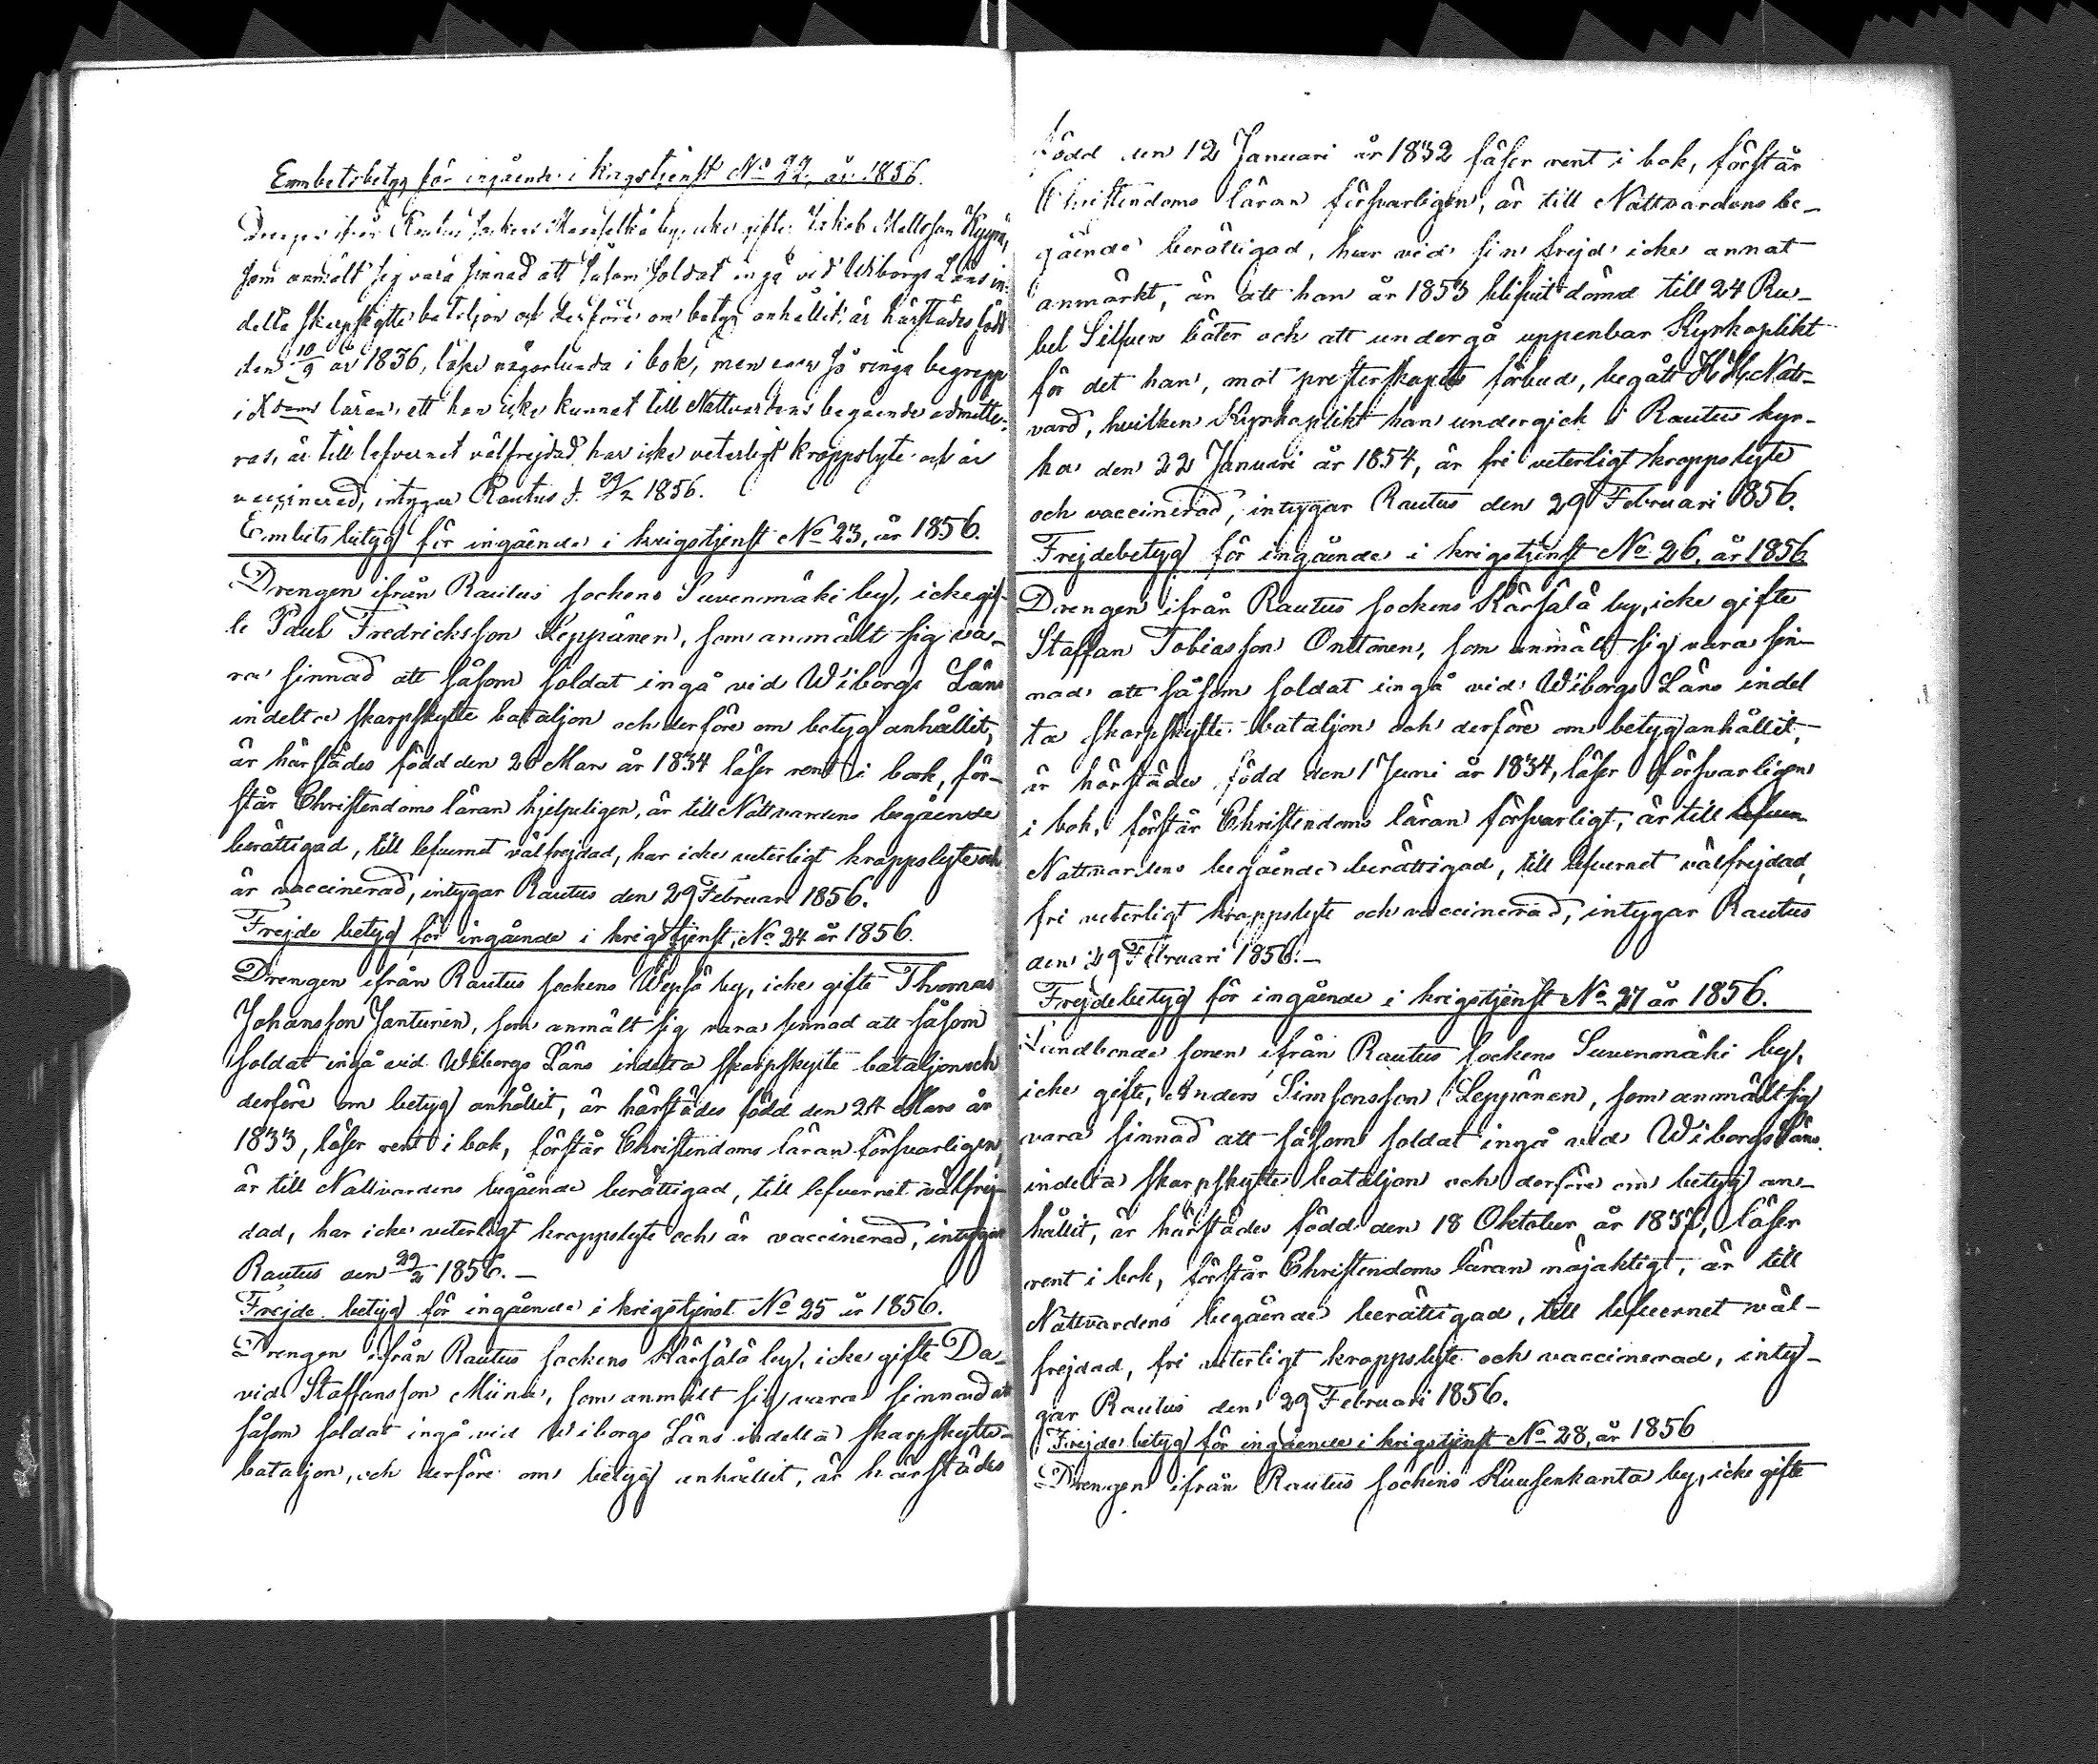 Embetsbetyg för ingående i krigstjenst No 22, år 1856.
Drengen ifrån Rautus sockens Maaselkä by, icke gifte Jakob Mattsson Kyyrä,
som anmält sig vara sinnad att såsom soldat ingå vid Wiborgs Läns in-
delta skarpskytte bataljon och derföre om betyg anhållit, är härstädes född
den 10/9 år 1836, läser någorlunda i bok, men eger så ringa begrepp
i Xdoms läran, att han icke kunnat till Nattvardens begående admitte-
ras, är till lefvernet välfrejdad, har icke veterligt kroppslyte och är
vaccinerad, intygar Rautus d. 29/2 1856.
Embets betyg för ingående i krigstjenst No 23, år 1856.
Drengen ifrån Rautus sockens Suvenmäki by, icke gif-
te Paul Fredricksson Leppänen, som anmält sig va-
ra sinnad att såsom soldat ingå vid Wiborgs Läns
indelta skarpskytte bataljon och derföre om betyg anhållit,
är härstädes född den 20 Mars år 1834 läser rent i bok, för-
står Christendoms läran hjelpeligen, är till Nattvardens begående
berättigad, till lefvernet välfrejdad, har icke veterligt kroppslyte och
är vaccinerad, intygar Rautus den 29 Februari 1856.
Frejde betyg för ingående i krigstjenst, No 24 år 1856.
Drengen ifrån Rautus sockens Wepsä by, icke gifte Thomas
Johansson Janturen, som anmält sig vara sinnad att såsom
soldat ingå vid Wiborgs Läns indelta skarpskytte bataljon och
derföre om betyg anhållit, är härstädes född den 24 Mars år
1833, läser rent i bok, förstår Christendoms läran försvarligen,
är till Nattvardens begående berättigad, till lefvernet välfrej-
dad, har icke veterligt kroppslyte och är vaccinerad, intygar
Rautus den 29/2 1856.—
Frejde betyg för ingående i krigstjenst No 25 år 1856.
Drengen ifrån Rautus sockens Kärsälä by, icke gifte Da-
vid Staffansson Miina, som anmält sig vara sinnad att
såsom soldat ingå vid Wiborgs Läns indelta skarpskytte-
bataljon, och derföre om betyg anhållit, är härstädes
född den 12 Januari år 1832 läser rent i bok, förstår
Christendoms läran försvarligen, är till Nattvardens be-
gående berättigad, har vid sin frejd icke annat
anmärkt, än att han år 1853 blifvit dömd till 24 Ru-
bel Silfver böter och att undergå uppenbar Kyrkoplikt
för det han, mot presterskapets förbud, begått H. H. Natt-
vard, hvilken Kyrkoplikt han undergick i Rautus kyr-
ka den 22 Januari år 1854, är fri veterligt kroppslyte
och vaccinerad, intygar Rautus den 29 Februari 1856.
Frejdebetyg för ingående i krigstjenst No 26, år 1856
Drengen ifrån Rautus sockens Kärsälä by, icke gifte
Staffan Tobiasson Onttonen, som anmält sig vara sin-
nad att såsom soldat ingå vid Wiborgs Läns indel
ta skarpskytte-bataljon och derföre om betyg anhållit,
är härstädes född den 1 Juni år 1834, läser försvarligen
i bok, förstår Christendoms läran försvarligt, är till lefver
Nattvardens begående berättigad, till lefvernet välfrejdad,
fri veterligt kroppslyte och vaccinerad, intygar Rautus
den 29 Februari 1856.—
Frejdebetyg för ingående i krigstjenst No 27 år 1856.
Landbonde sonen ifrån Rautus sockens Suvenmäki by,
icke gifte, Anders Simsonsson Leppänen, som anmält sig
vara sinnad att såsom soldat ingå vid Wiborgs Läns
indelta skarpskytte bataljon och derföre om betyg an-
hållit, är härstädes född den 18 Oktober år läser
rent i bok, förstår Christendoms läran nöjaktigt, är till
Nattvardens begående berättigad, till lefvernet väl-
frejdad, fri veterligt kroppslyte och vaccinerad, inty-
gar Rautus den 29 Februari 1856.
Frejde betyg för ingående i krigstjenst No 28, år 1856
Drengen ifrån Rautus sockens Kuusenkanta by, icke gifte